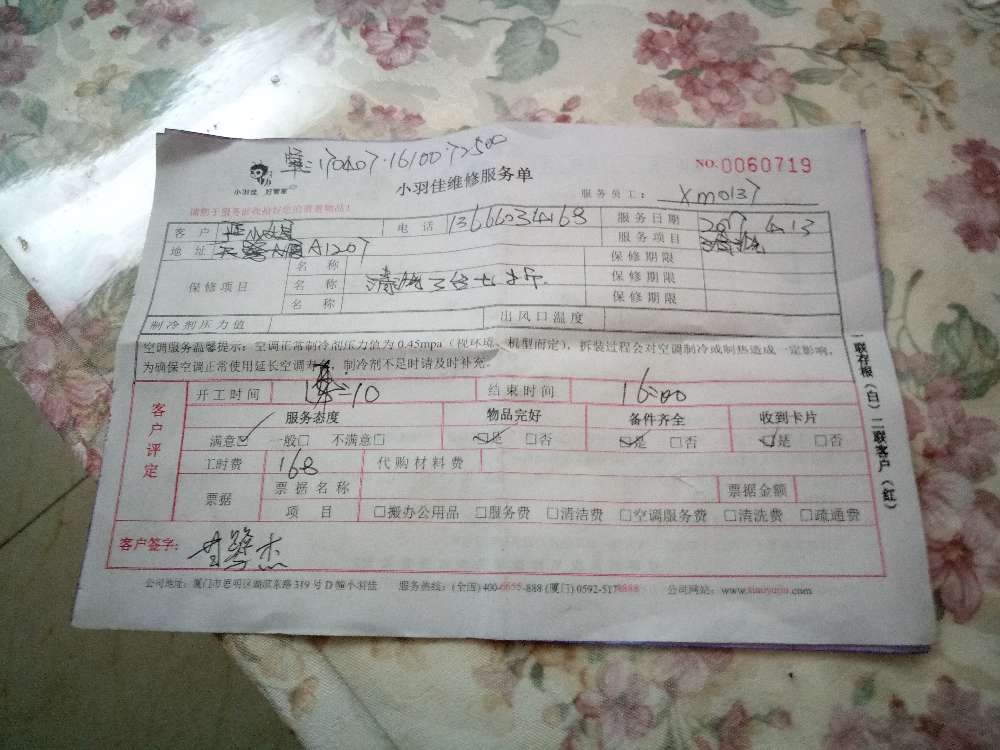 170407·1610072500
NO. 0060719
小羽佳 好管家
小羽佳维修服务单
服务员工： Xm0137
请您于服务前收拾好您的贵重物品！
客户 电话 13666034168 服务日期 2017 4.13
地址 A1207 服务项目 清洗
保修项目 名称 保修期限
名称 清洗 保修期限
名称 保修期限
制冷剂压力值 出风口温度
空调服务温馨提示：空调正常制冷剂压力值为0.45mpa（视环境、机型而定），拆装过程会对空调制冷或制热造成一定影响，
为确保空调正常使用延长空调寿命，制冷剂不足时请及时补充。
客户评定
开工时间 :10 结束时间 16:00
服务态度 物品完好 备件齐全 收到卡片
满意☑ 一般□ 不满意□ ☑是 □否 ☑是 □否 ☑是 □否
工时费 168 代购材料费
票据 票据名称 票据金额
项目 □搬办公用品 □服务费 □清洁费 □空调服务费 □清洗费 □疏通费
客户签字：
公司地址：厦门市思明区湖滨东路319号D幢小羽佳 服务热线：(全国) 400-6655-888 (厦门) 0592-5178888 公司网站：www.xiaoyujia.com
一联存根（白）二联客户（红）